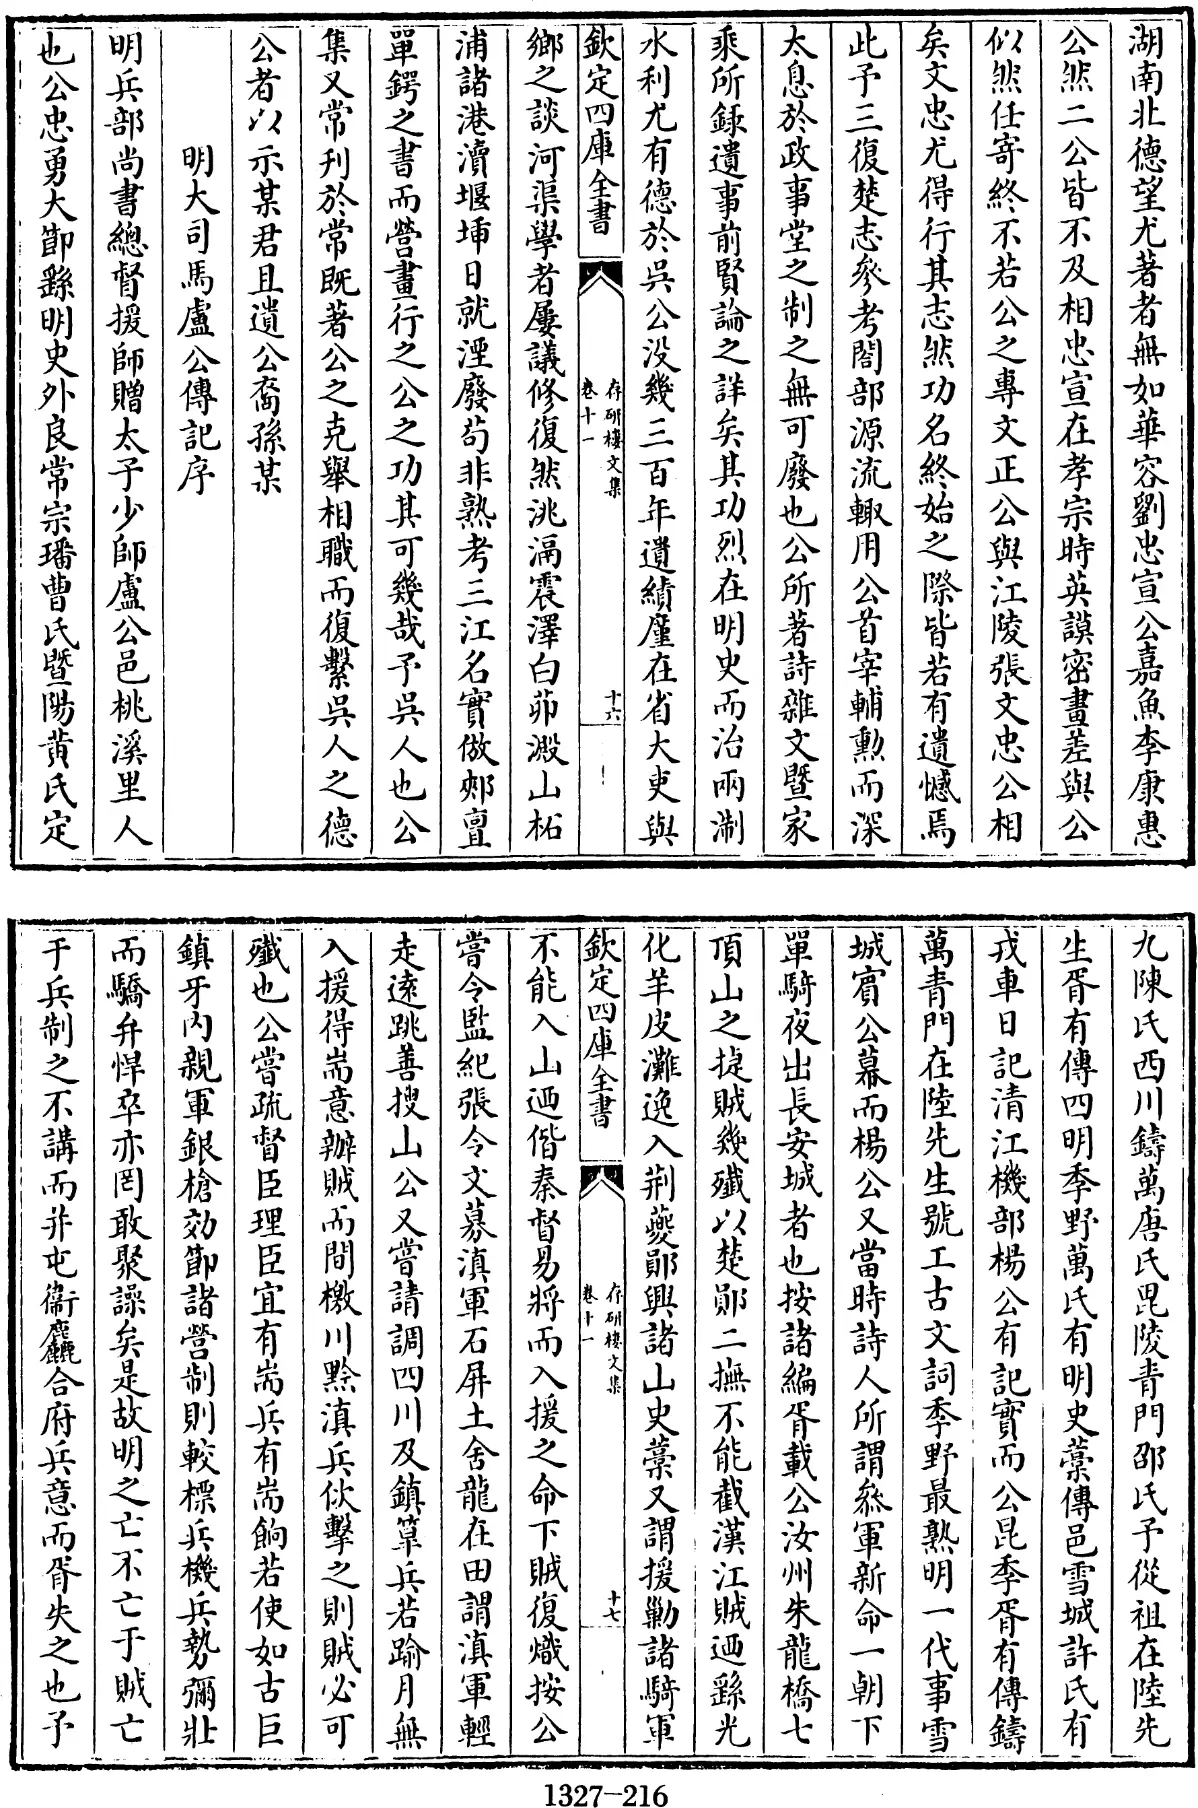 湖南北德望尤著者無如華容劉忠宣公嘉魚李康惠
公然二公皆不及相忠宣在孝宗時英謨密畫差與公
似然任寄終不若公之專文正公與江陵張文忠公相
矣文忠尤得行其志然功名終始之際皆若有遺憾焉
此予三復楚志參考閣部源流輙用公首宰輔勲而深
太息於政事堂之制之無可廢也公所著詩雜文暨家
乘所録遺事前賢論之詳矣其功烈在明史而治兩淛
水利尤有德於吳公没幾三百年遺績廑在省大吏與
欽定四庫全書
存研樓文集
卷十一
十六
鄉之談河渠學者屢議修復然洮滆震澤白茆澱山柘
浦諸港瀆堰埂日就湮廢苟非熟考三江名實倣郟亶
單鍔之書而營畫行之公之功其可幾哉予吳人也公
集又常刊於常既著公之克舉相職而復繫吳人之德
公者以示某君且遺公裔孫某
明大司馬盧公傳記序
明兵部尚書總督援師贈太子少師盧公邑桃溪里人
也公忠勇大節繇明史外良常宗璠曹氏暨陽黃氏定
九陳氏西川鑄萬唐氏毘陵青門邵氏予從祖在陸先
生胥有傳四明季野萬氏有明史藁傳邑雪城許氏有
戎車日記清江機部楊公有記實而公昆季胥有傳鑄
萬青門在陸先生號工古文詞季野最熟明一代事雪
城賔公幕而楊公又當時詩人所謂叅軍新命一朝下
單騎夜出長安城者也按諸編胥載公汝州朱龍橋七
頂山之捷賊幾殲以楚鄖二撫不能截漢江賊廼繇光
化羊皮灘逸入荆夔鄖興諸山史藁又謂援勦諸騎軍
欽定四庫全書
存研樓文集
卷十一
十七
不能入山廼偕秦督易將而入援之命下賊復熾按公
嘗令監紀張令文募滇軍石屏土舍龍在田謂滇軍輕
走遠跳善搜山公又嘗請調四川及鎮筸兵若踰月無
入援得耑意辦賊而間檄川黔滇兵伙擊之則賊必可
殲也公嘗疏督臣理臣宜有耑兵有耑餉若使如古巨
鎮牙内親軍銀槍効節諸營制則較標兵機兵勢彌壯
而驕弁悍卒亦罔敢聚譟矣是故明之亡不亡于賊亡
于兵制之不講而并屯衞麤合府兵意而胥失之也予
1327-216